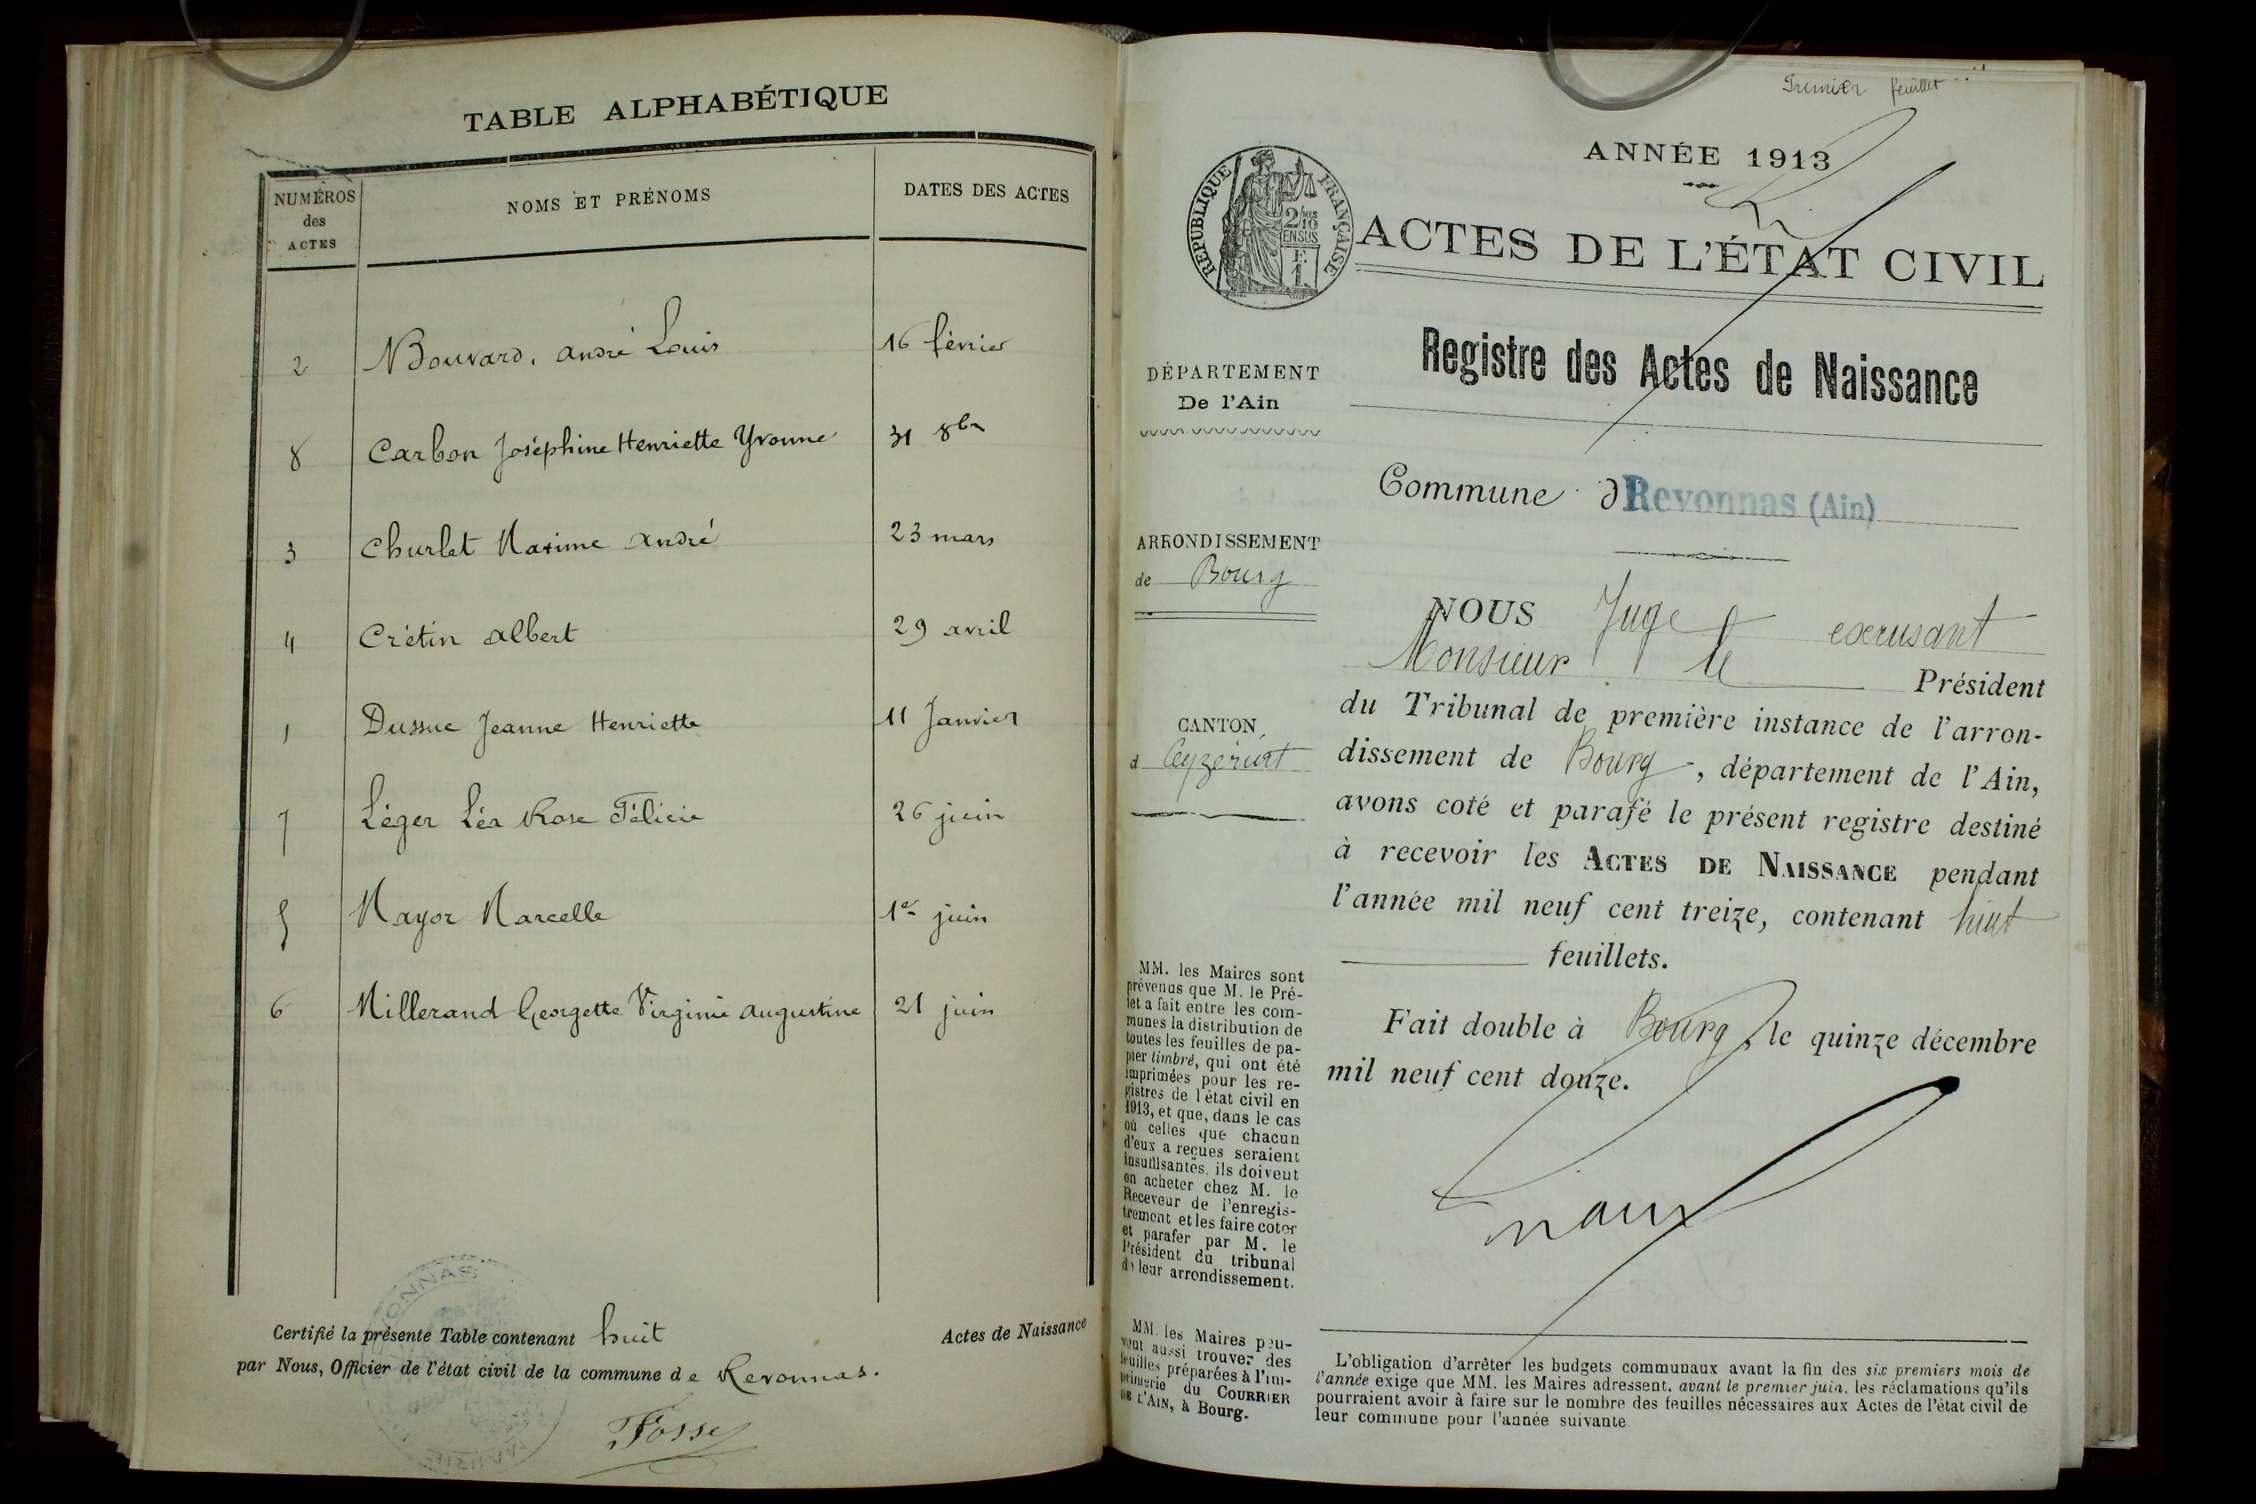 TABLE ALPHABÉTIQUE
NUMÉROS des ACTES NOMS ET PRÉNOMS DATES DES ACTES
2 Bouvard, André Louis 16 février
8 Carbon Joséphine Henriette Yvonne 31 8bre
3 Churlet Maxime André 23 mars
4 Crétin Albert 29 avril
1 Dussuc Jeanne Henriette 11 Janvier
7 Léger Léa Rose Félicie 26 juin
5 Mayor Marcelle 1er juin
6 Millerand Georgette Virginie Augustine 21 juin
Certifié la présente Table contenant huit Actes de Naissance
par Nous, Officier de l'état civil de la commune de Revonnas.
Fosse
Premier feuillet
ANNÉE 1913
RÉPUBLIQUE FRANÇAISE
2/10MES
EN SUS
F.
1.
ACTES DE L'ÉTAT CIVIL
Registre des Actes de Naissance
DÉPARTEMENT
De l'Ain
Commune d Revonnas (Ain)
ARRONDISSEMENT
de Bourg
CANTON
d Ceyzériat
NOUS Juge excusant
Monsieur le Président
du Tribunal de première instance de l'arron-
dissement de Bourg, département de l'Ain,
avons coté et parafé le présent registre destiné
à recevoir les ACTES DE NAISSANCE pendant
l'année mil neuf cent treize, contenant huit
feuillets.
Fait double à Bourg, le quinze décembre
mil neuf cent douze.
MM. les Maires sont
prévenus que M. le Pré-
fet a fait entre les com-
munes la distribution de
toutes les feuilles de pa-
pier timbré, qui ont été
imprimées pour les re-
gistres de l'état civil en
1913, et que, dans le cas
où celles que chacun
d'eux a reçues seraient
insuffisantes, ils doivent
en acheter chez M. le
Receveur de l'enregis-
trement et les faire coter
et parafer par M. le
Président du tribunal
de leur arrondissement.
MM. les Maires peu-
vent aussi trouver des
feuilles préparées à l'im-
primerie du COURRIER
DE L'AIN, à Bourg.
L'obligation d'arrêter les budgets communaux avant la fin des six premiers mois de
l'année exige que MM. les Maires adressent, avant le premier juin, les réclamations qu'ils
pourraient avoir à faire sur le nombre des feuilles nécessaires aux Actes de l'état civil de
leur commune pour l'année suivante